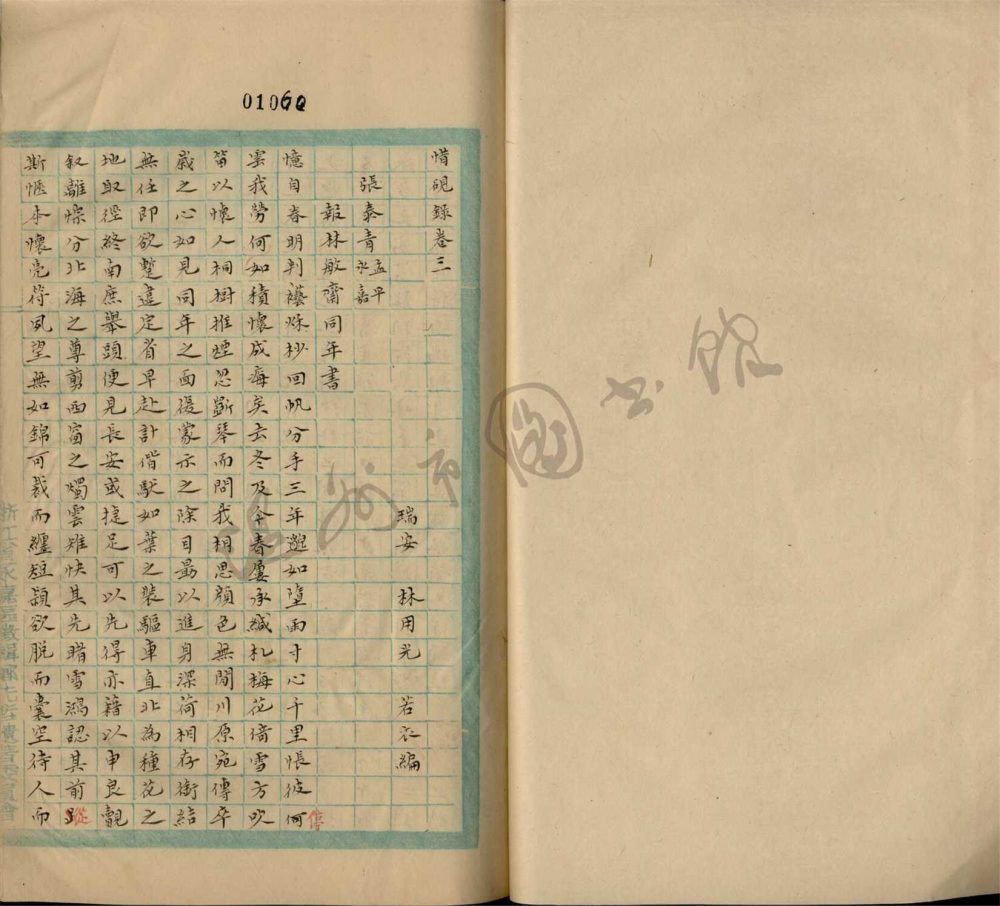 01060
惜硯錄卷三
瑞安 林用光 若衣編
張泰青 孟平 永嘉
報林敏齋同年書
憶自春明判襼秌杪回帆分手三年邈如墮雨寸心千里悵彼何
雲我勞何如積懷成痗矣去冬及今春屢承緘札梅花倚雪方吹
笛以懷人桐樹推烟忽斷琴而問我相思顏色無間川原宛傳卒
歲之心如見同年之面復蒙示之除目勗以進身深荷相存銜結
無任即欲蹔違定省早赴計偕馱如葉之裝驅車直北為種花之
地取徑終南庶舉頭便見長安或捷足可以先得亦藉以申良覿
叙離悰分北海之尊剪西窗之燭雲雉快其先睹雪鴻認其前
斯愜本懷亮符夙望無如錦可裁而纆短穎欲脫而囊空待人而
溫州市圖書館